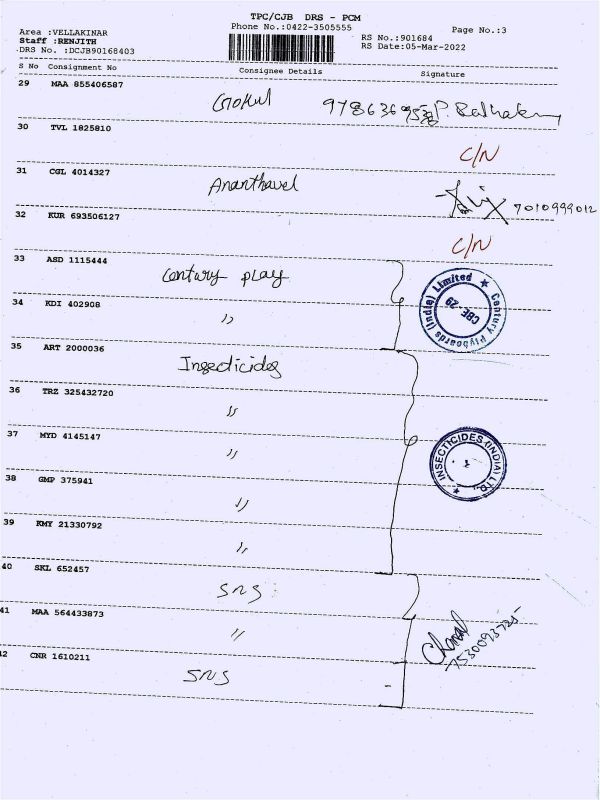 TPC/CJB DRS - PCM
Phone No.:0422-3505555
Page No.:3
Area :VELLAKINAR
Staff :RENJITH
DRS No. :DCJB90168403
RS No.:901684
RS Date:05-Mar-2022
S No Consignment No Consignee Details Signature
29 MAA 855406587 Gokul
30 TVL 1825810 C/N
31 CGL 4014327 Ananthavel 7010999012
32 KUR 693506127 C/N
33 ASD 1115444 Century play
Century Plyboards (India) Limited ★ CBE - 29
34 KDI 402908 〃
35 ART 2000036 Insecticides
36 TRZ 325432720 〃
37 MYD 4145147 〃
INSECTICIDES (INDIA) LTD. ★
38 GMP 375941 〃
39 KMY 21330792 〃
40 SKL 652457 SNS
41 MAA 564433873 〃
7530093725
42 CNR 1610211 SNS